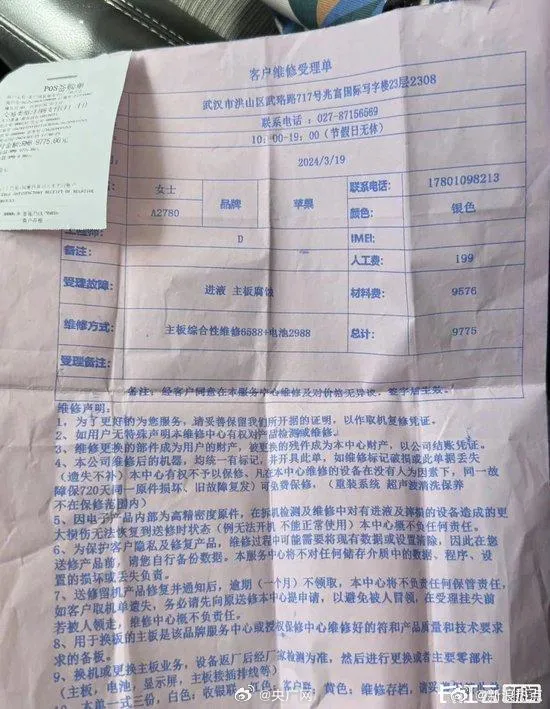 客户维修受理单
POS签购单
武汉市洪山区武珞路717号兆富国际写字楼23层2308
联系电话：027-87156569
10：00-19：00（节假日无休）
RMB 9775.00
2024/3/19
女士
联系电话：
17801098213
A2780
品牌
苹果
颜色：
银色
D
IMEI：
备注：
人工费：
199
受理故障：
进液 主板腐蚀
材料费：
9576
维修方式：
主板综合性维修6588+电池2988
总计：
9775
受理备注：
备注：经客户同意在本服务中心维修及对价格无异议，签字后生效。
维修声明：
1、为了更好的为您服务，请妥善保留我们所开据的证明，以作取机复修凭证。
2、如用户无特殊声明本维修中心有权对产品检测或维修。
3、维修更换的部件成为用户的财产，被更换的残件成为本中心财产，以公司结账凭证。
4、本公司维修后的机器，均统一有标记，并开具此单，如维修标记破损或此单据丢失
（遗失不补）本中心有权不予以保修、凡在本中心维修的设备在没有人为因素下，同一故
障保720天同一原件损坏、旧故障复发）可免费保修，（重装系统 超声波清洗保养
不在保修范围内）
5、因电子产品内部为高精密度原件，在拆机检测及维修中对有进液及摔损的设备造成的更
大损伤无法恢复到送修时状态（例无法开机 不能正常使用）本中心概不负任何责任。
6、为保护客户隐私及修复产品，维修过程中可能需要将现有数据或设置清除，因此在您
送修产品前，请您自行备份数据。本服务中心将不对任何储存介质中的数据、程序、设
置的损坏或丢失负责。
7、送修留机产品修复并通知后，逾期（一个月）不领取，本中心将不负责任何保管责任。
如客户取机单遗失，务必请先向原送修本中心提申请，以避免被人冒领，在受理挂失前
若被人领走，维修中心概不负责。
8、用于换板的主板是该品牌服务中心或授权保修中心维修好的符和产品质量和技术要求
求的备板。
9、换机或更换主板业务，设备返厂后经厂家检测为准，然后进行更换或者主要零部件
（主板，电池，显示屏，主板接插排线等）
10、本单一式三份，白色：收银联，红色：客户联 黄色：维修存档，请妥
@央广网
@新浪热点